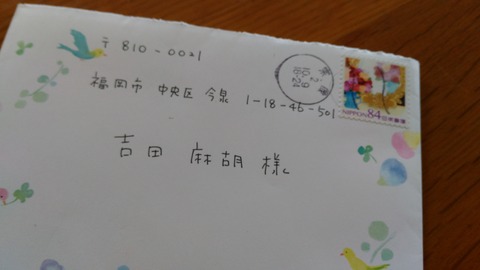 〒810-0021
福岡市 中央区 今泉 1-18-46-501
吉田 麻胡 様
NIPPON 84 日本郵便